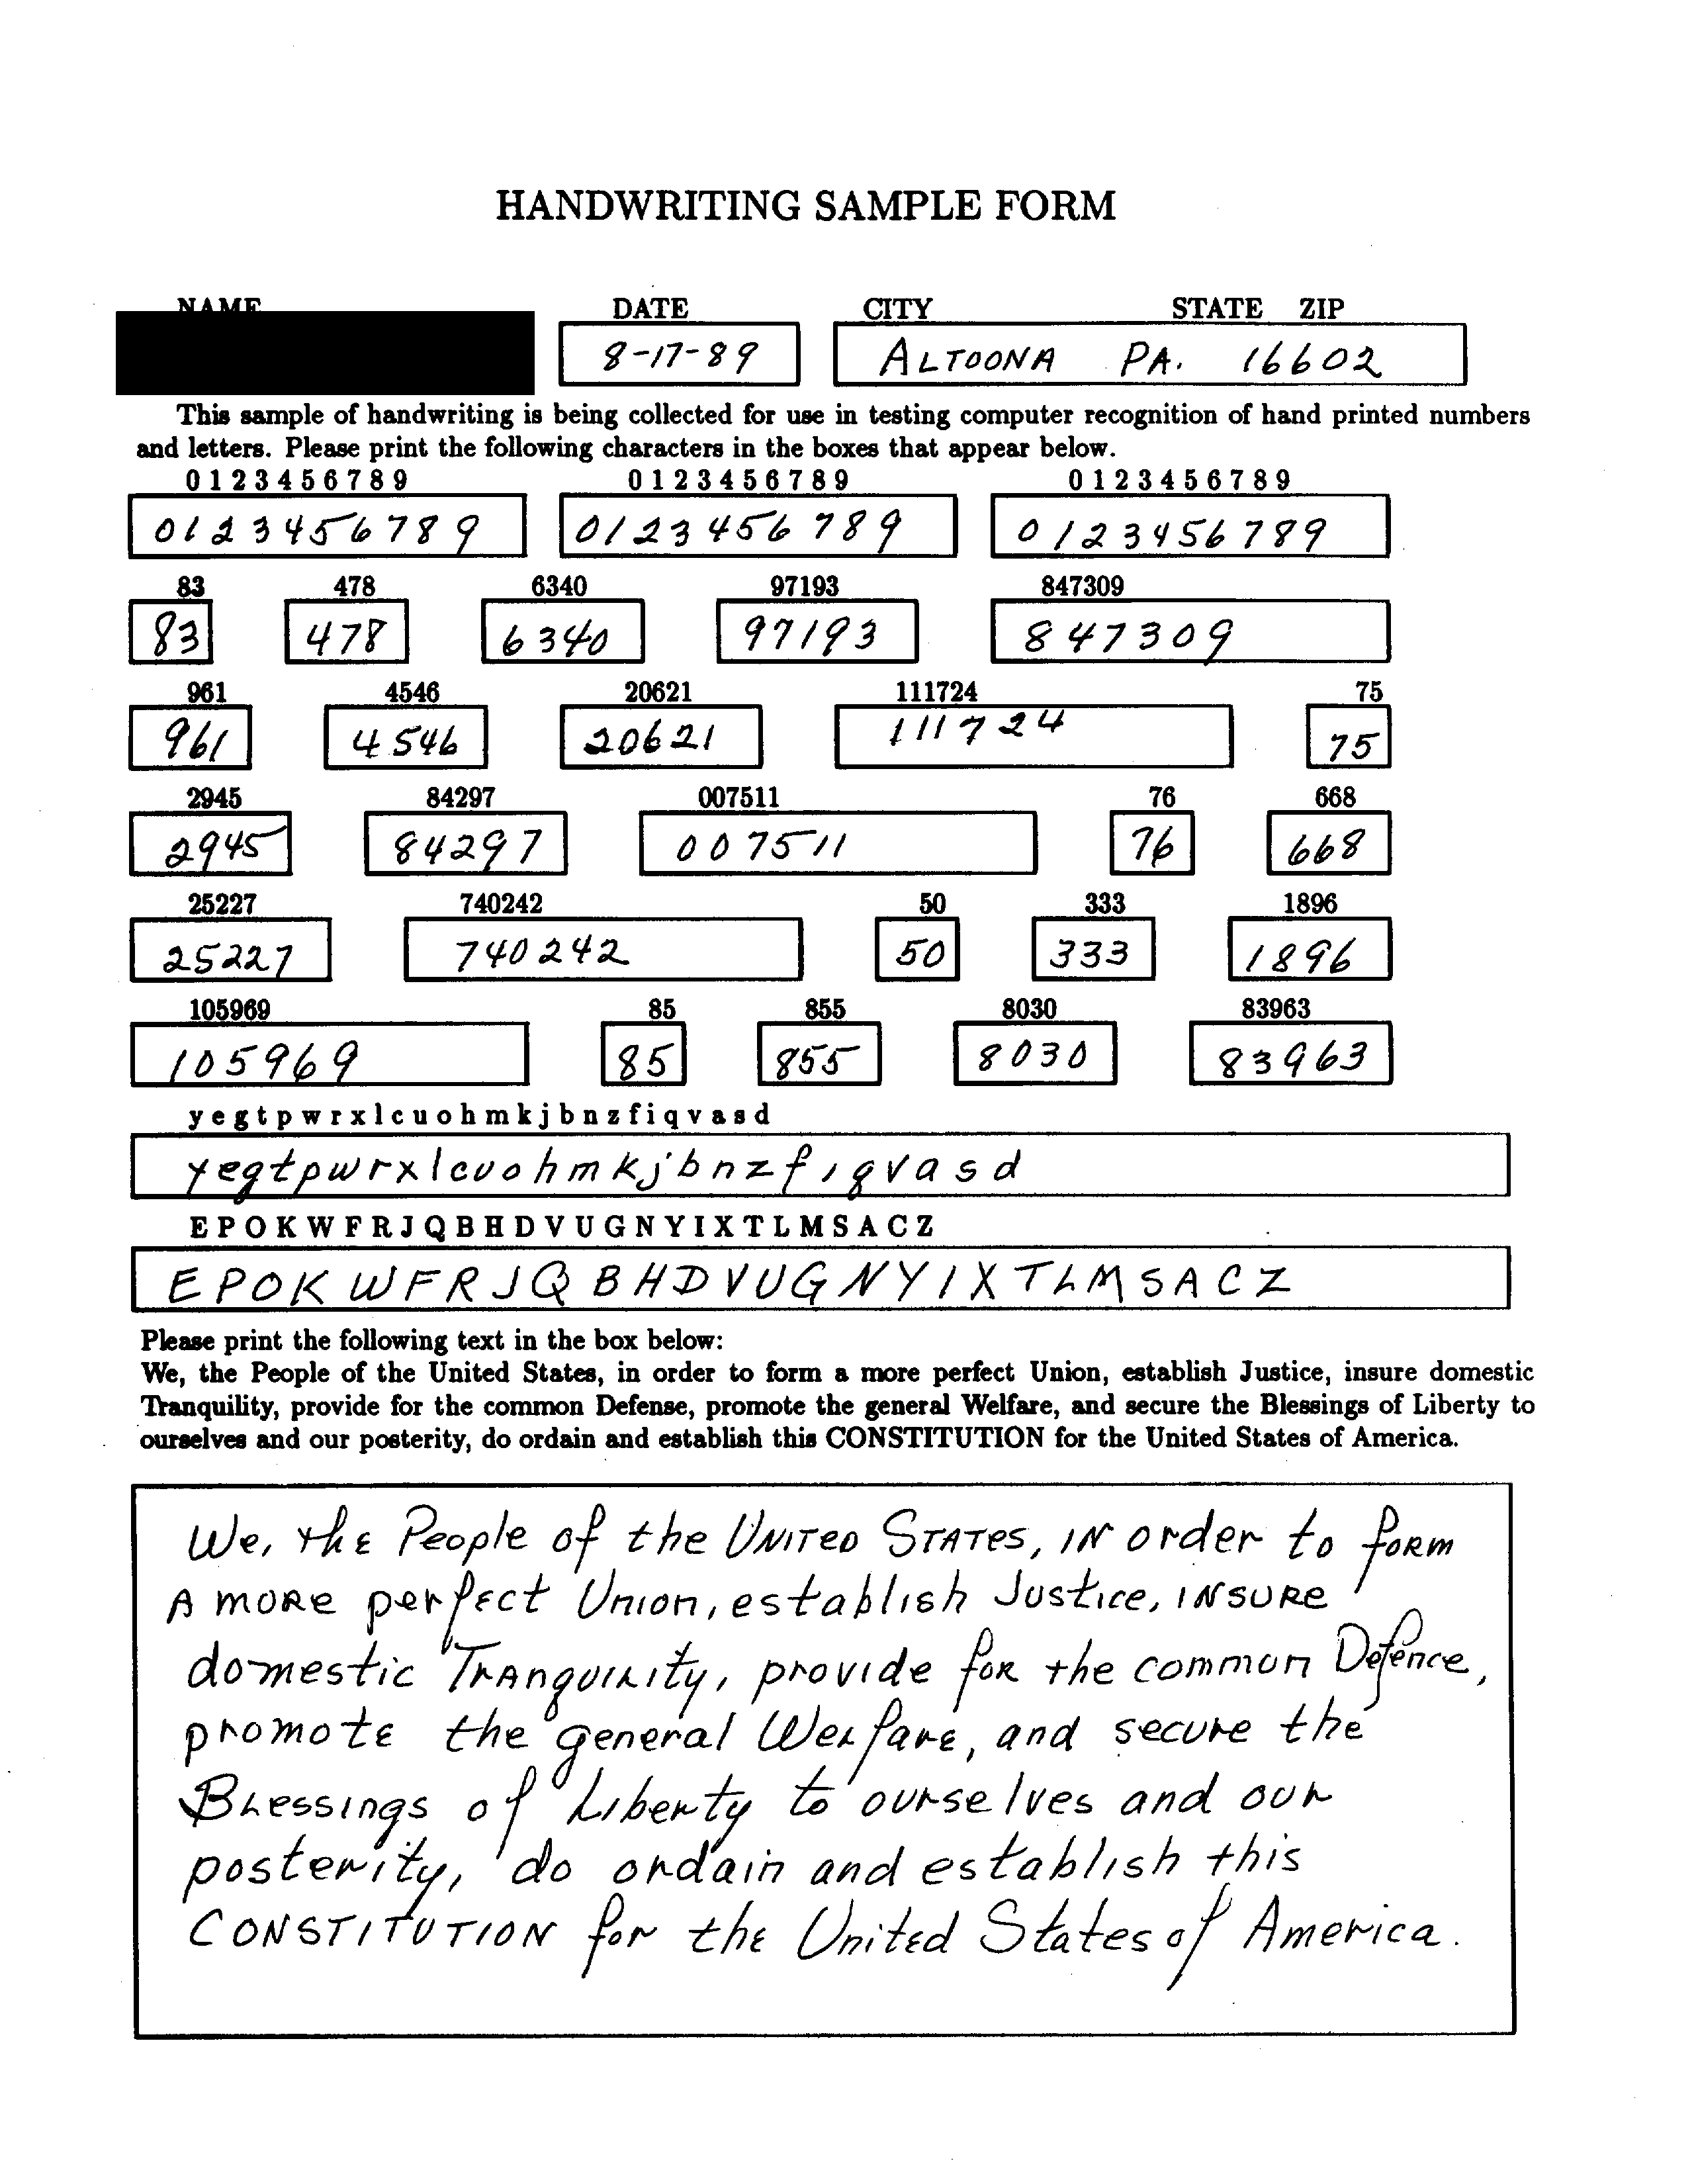 HANDWRITING SAMPLE FORM
NAME DATE CITY STATE ZIP
8-17-89 ALTOONA PA. 16602
This sample of handwriting is being collected for use in testing computer recognition of hand printed numbers
and letters. Please print the following characters in the boxes that appear below.
0 1 2 3 4 5 6 7 8 9 0 1 2 3 4 5 6 7 8 9 0 1 2 3 4 5 6 7 8 9
0123456789 0123456789 0123456789
83 478 6340 97193 847309
83 478 6340 97193 847309
961 4546 20621 111724 75
961 4546 20621 111724 75
2945 84297 007511 76 668
2945 84297 007511 76 668
25227 740242 50 333 1896
25227 740242 50 333 1896
105969 85 855 8030 83963
105969 85 855 8030 83963
y e g t p w r x l c u o h m k j b n z f i q v a s d
y e g t p w r x l c u o h m k j b n z f i q v a s d
E P O K W F R J Q B H D V U G N Y I X T L M S A C Z
E P O K W F R J Q B H D V U G N Y I X T L M S A C Z
Please print the following text in the box below:
We, the People of the United States, in order to form a more perfect Union, establish Justice, insure domestic
Tranquility, provide for the common Defense, promote the general Welfare, and secure the Blessings of Liberty to
ourselves and our posterity, do ordain and establish this CONSTITUTION for the United States of America.
We, the People of the UNITED STATES, IN order to foRM
A moRe perfect Union, establish Justice, INSURe
domestic TRAnquility, provide foR the common Defence,
promote the general Welfare, and secure the
Blessings of Liberty to ourselves and our
posterity, do ordain and establish this
CONSTITUTION for the United States of America.